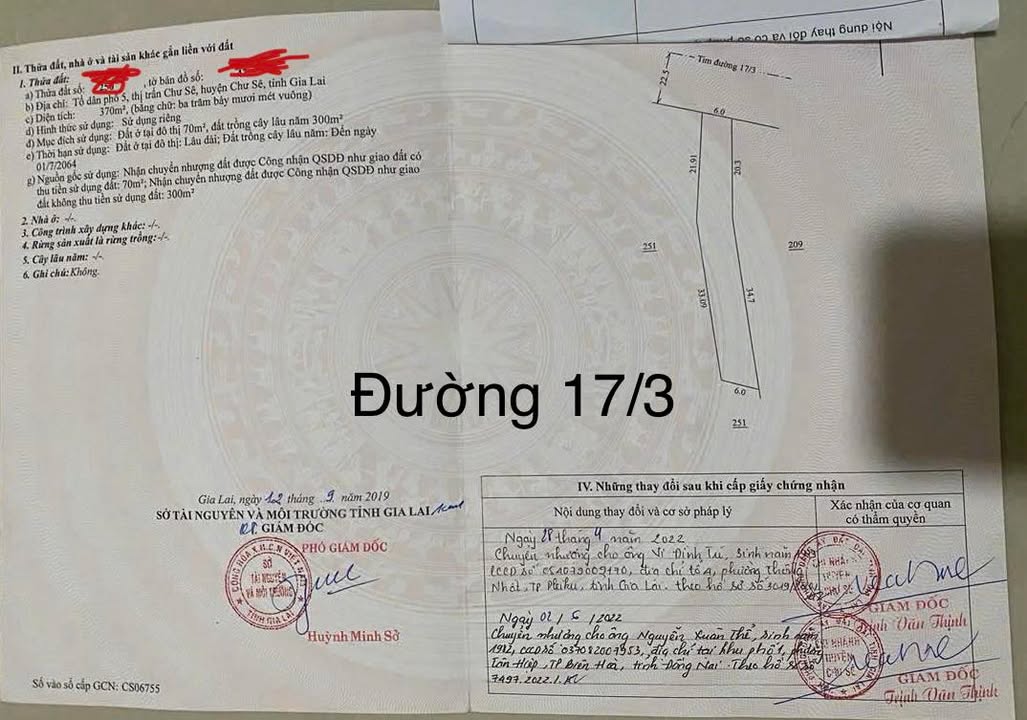 II. Thửa đất, nhà ở và tài sản khác gắn liền với đất
1. Thửa đất:
a) Thửa đất số: , tờ bản đồ số:
b) Địa chỉ: Tổ dân phố 5, thị trấn Chư Sê, huyện Chư Sê, tỉnh Gia Lai
c) Diện tích: 370m², (bằng chữ: ba trăm bảy mươi mét vuông)
d) Hình thức sử dụng: Sử dụng riêng
đ) Mục đích sử dụng: Đất ở tại đô thị 70m², đất trồng cây lâu năm 300m²
e) Thời hạn sử dụng: Đất ở tại đô thị: Lâu dài; Đất trồng cây lâu năm: Đến ngày
01/7/2064
g) Nguồn gốc sử dụng: Nhận chuyển nhượng đất được Công nhận QSDĐ như giao đất có
thu tiền sử dụng đất: 70m²; Nhận chuyển nhượng đất được Công nhận QSDĐ như giao
đất không thu tiền sử dụng đất: 300m²
2. Nhà ở: -/-.
3. Công trình xây dựng khác: -/-.
4. Rừng sản xuất là rừng trồng: -/-.
5. Cây lâu năm: -/-.
6. Ghi chú: Không.
Nội dung thay đổi và cơ sở
Tim đường 17/3
22.5
6.0
21.91
20.3
251
209
33.09
34.7
6.0
251
Đường 17/3
Gia Lai, ngày 12 tháng 9 năm 2019
SỞ TÀI NGUYÊN VÀ MÔI TRƯỜNG TỈNH GIA LAI
KT. GIÁM ĐỐC
PHÓ GIÁM ĐỐC
CỘNG HÒA X.H.C.N VIỆT NAM
SỞ
TÀI NGUYÊN
VÀ MÔI TRƯỜNG
TỈNH GIA LAI
Huỳnh Minh Sở
Số vào sổ cấp GCN: CS06755
IV. Những thay đổi sau khi cấp giấy chứng nhận
Nội dung thay đổi và cơ sở pháp lý
Xác nhận của cơ quan
có thẩm quyền
Ngày 28 tháng 4 năm 2022
Chuyển nhượng cho ông Vi Đình Tu, Sinh năm
CCCD số địa chỉ tổ 4, phường Thống
Nhất, TP Pleiku, tỉnh Gia Lai. theo hồ sơ số
GIÁM ĐỐC
Trịnh Văn Thịnh
Ngày 02/6/2022
Chuyển nhượng cho ông Nguyễn Xuân Thể, Sinh năm
CCCD số 037082007953, địa chỉ tại khu phố 1, phường
Tân Hiệp, TP Biên Hòa, tỉnh Đồng Nai. Theo hồ sơ số
7497.2022.
CHI NHÁNH
HUYỆN
CHƯ SÊ
GIÁM ĐỐC
Trịnh Văn Thịnh